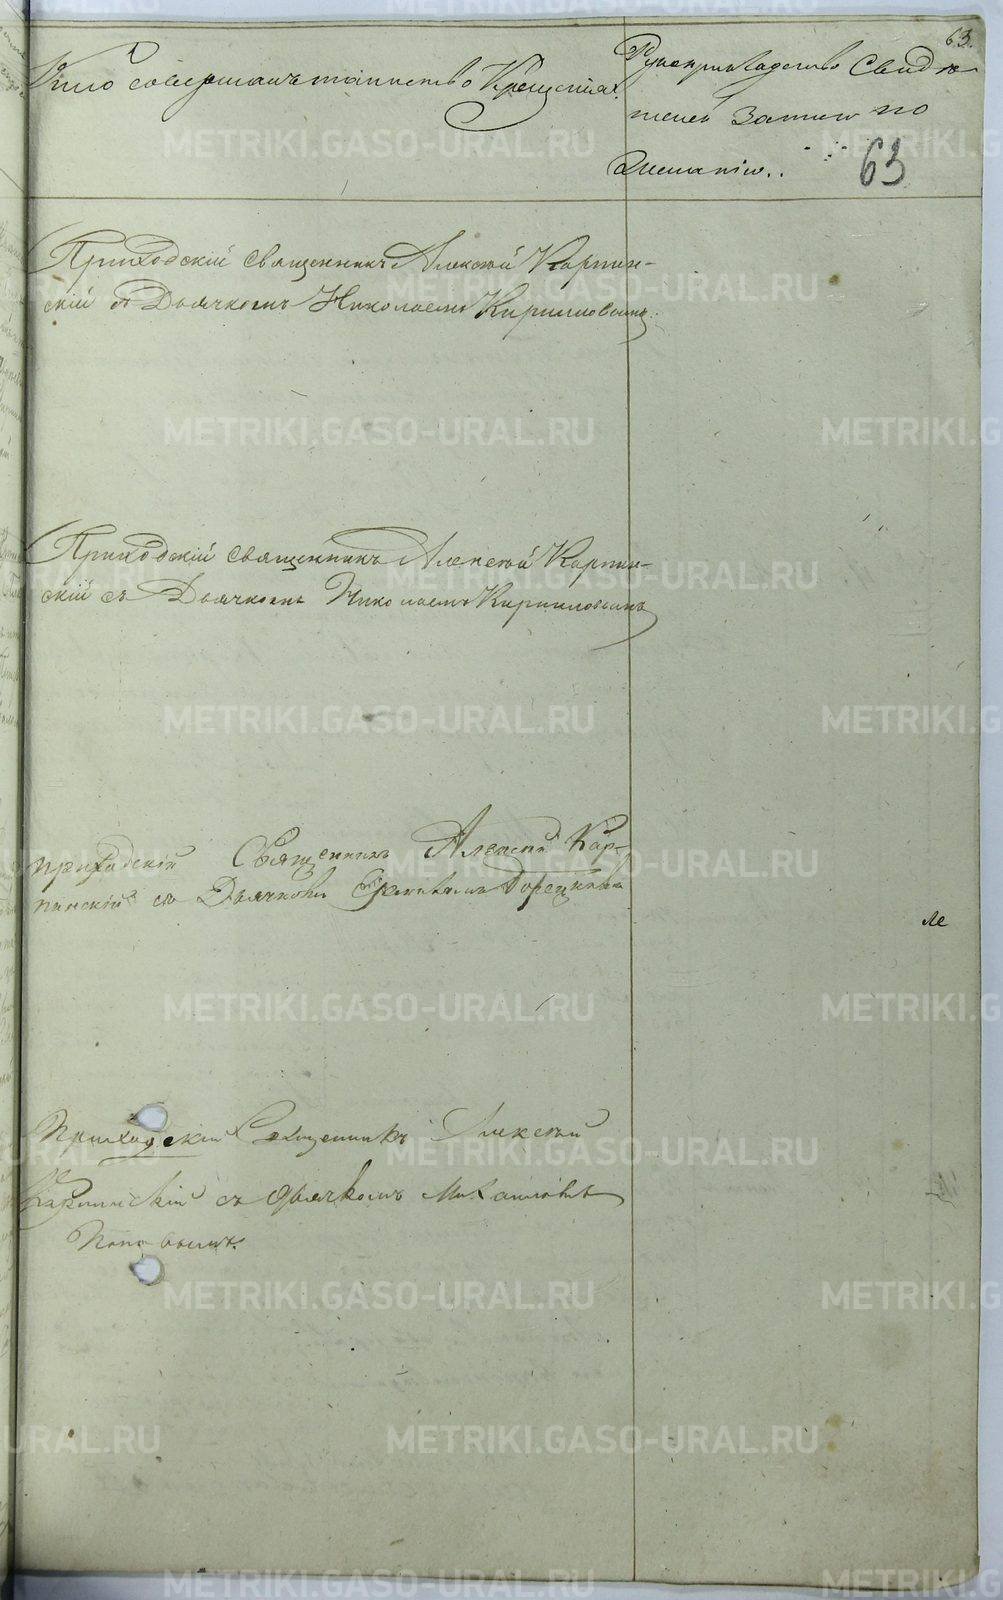 63.
Кто совершалъ таинство Крещенія.
Рукоприкладство Свидѣ-
телей Записи по
желанію..
63
Приходскій священникъ Алексѣй Карпин-
скій съ Дьячкомъ Николаемъ Кирилловымъ.
Приходскій священникъ Алексѣй Карпин-
скій съ Дьячкомъ Николаемъ Кирилловымъ
приходскій Священникъ Алексѣй Кар-
пинскій съ Дьячкомъ
ле
Приходскій Священникъ Алексѣй
Карпинскій съ дьячкомъ Михаиломъ
Поповымъ.
METRIKI.GASO-URAL.RU